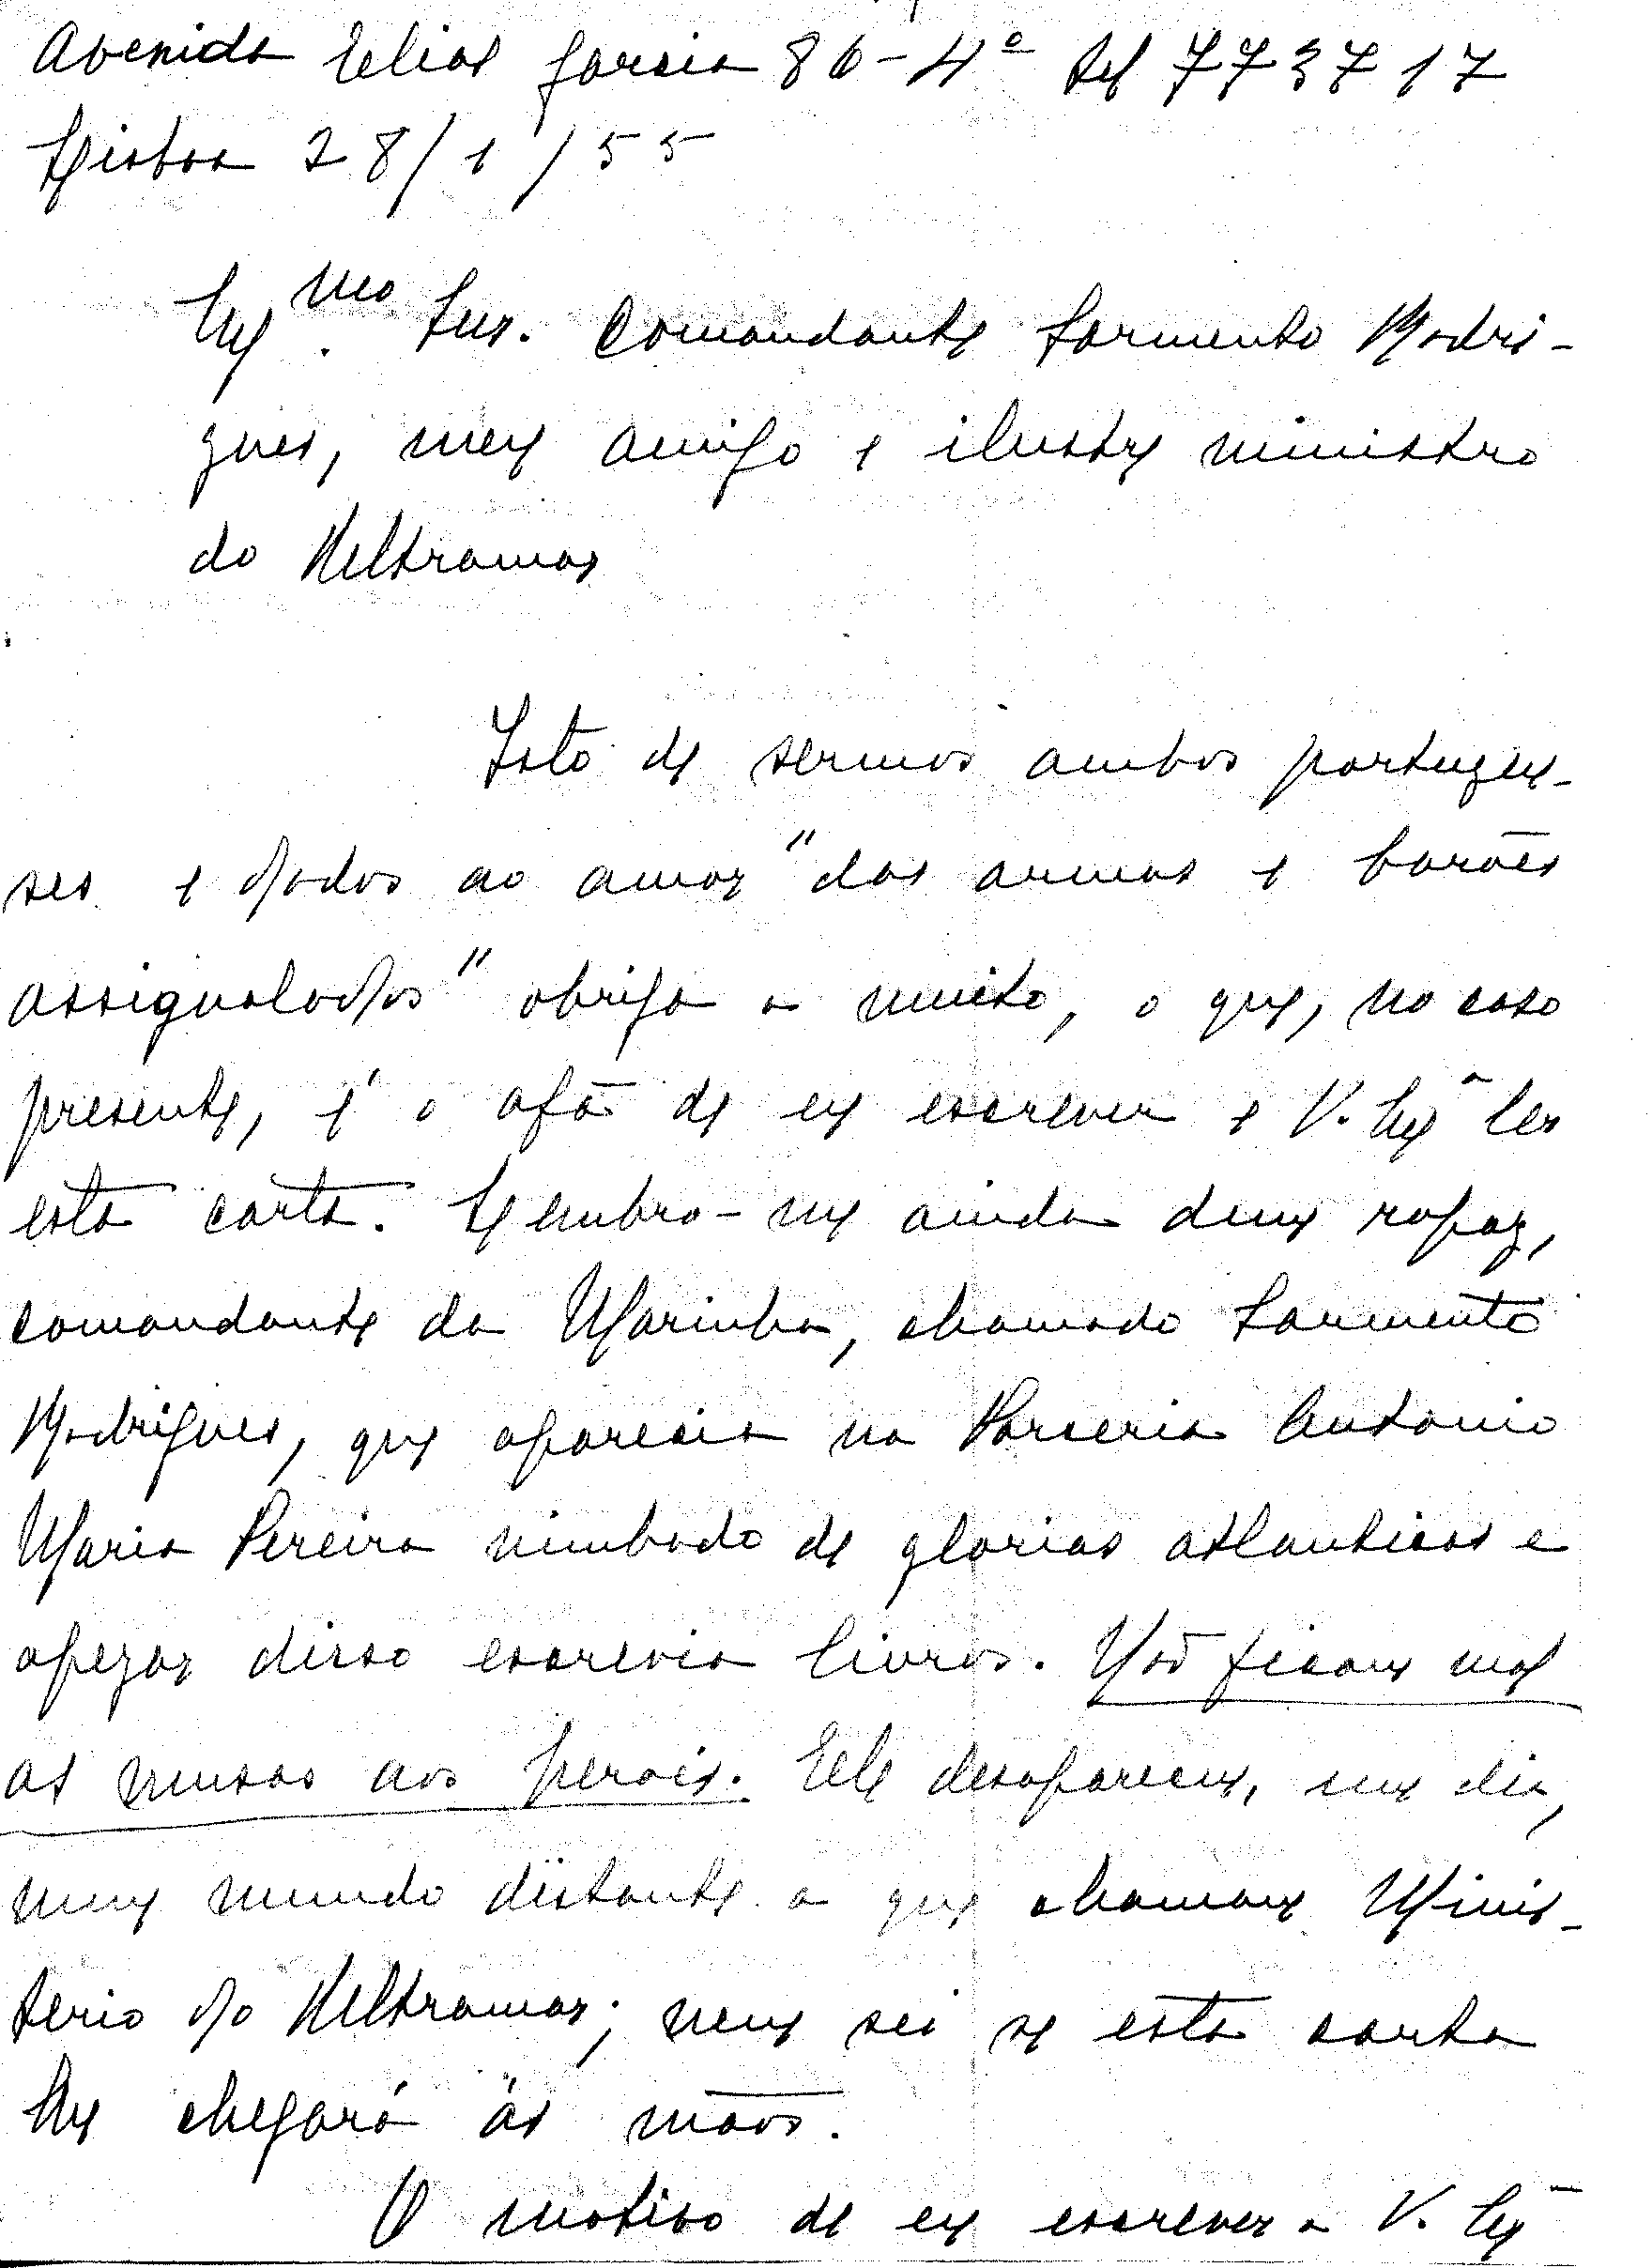 Avenida Elias Garcia 86-4º Tel 773717
Lisboa 28/1/55
Exmo. Snr. Comandante Sarmento Rodri-
gues, meu amigo e ilustre ministro
do Ultramar
Isto de sermos ambos portugue-
ses e dados ao amor "das armas e barões
assignalados" obriga a muito, o que, no caso
presente, é o afã de eu escrever e V. Exª ler
esta carta. Lembro-me ainda dum rapaz,
comandante da Marinha, chamado Sarmento
Rodrigues, que aparecia na Parceria Antonio
Maria Pereira nimbado de glorias atlanticas e
apezar disso escrevia livros. Não ficam mal
as musas aos herois. Ele desapareceu, um dia,
num mundo distante a que chamam Minis-
terio do Ultramar; nem sei se esta carta
lhe chegará ás mãos.
O motivo de eu escrever a V. Exª